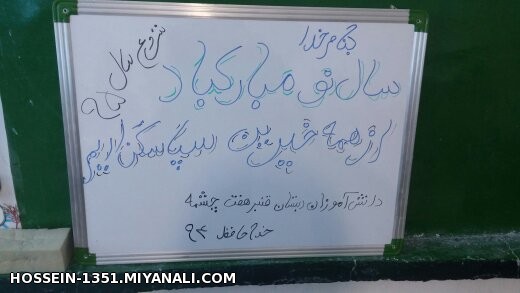 بنام خدا
شروع سال ۹۵
سال نو مبارکباد
از همه خیرین سپاسگذاریم
دانش آموزان دبستان قنبر هفت چشمه
خداحافظ ۹۴
HOSSEIN-1351.MIYANALI.COM